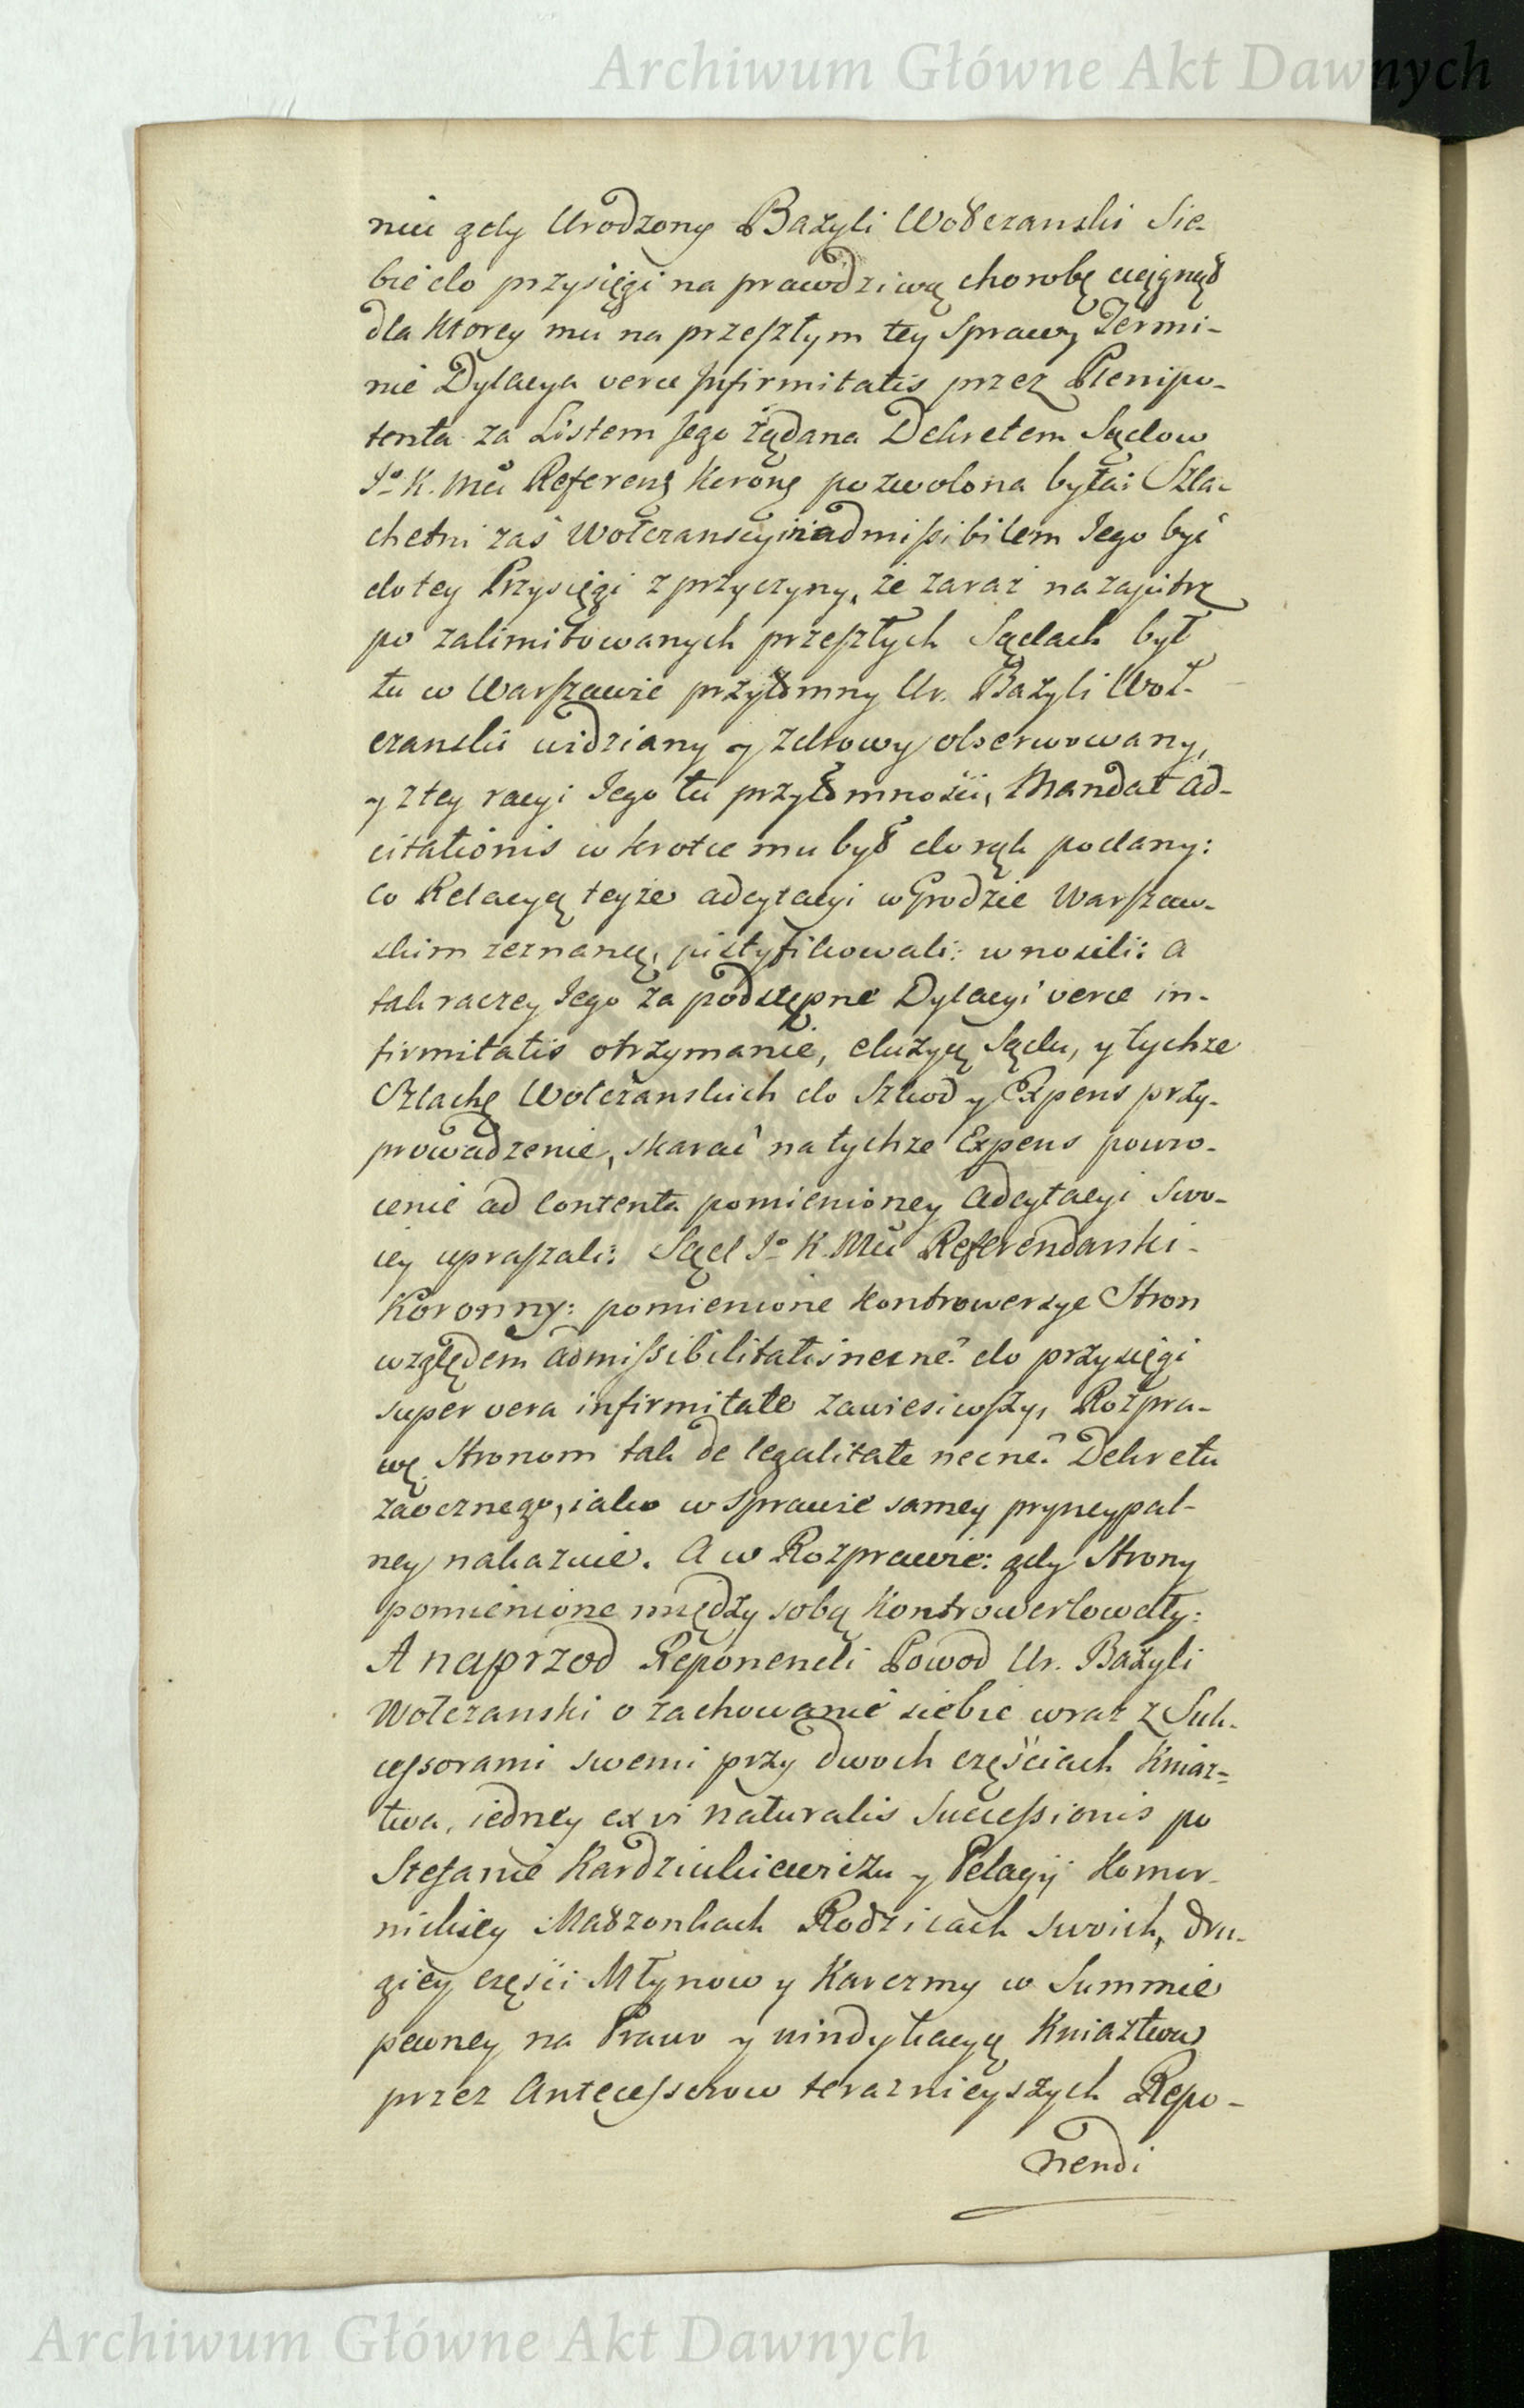 Archiwum Główne Akt Dawnych
niu gdy Urodzony Bazyli Wołczanski Sie-
bie do przysięgi na prawdziwą chorobę ciągnął
dla ktorey mu na przeszłym tey sprawy Termi-
nie Dylacya veræ Infirmitatis przez Plenipo-
tenta za Listem Jego żądana Dekretem Sądow
Jo K. Mci Referens Korons pozwolona była: Szla-
chetni zaś Wołczanscy inadmissibilem Jego być
do tey Przysięgi z przyczyny, że zaraz nazajutrz
po zalimitowanych przeszłych Sądach był
tu w Warszawie przytomny Ur. Bazyli Woł-
czanski widziany y zdrowy obserwowany,
y z tey racyi Jego tu przytomności, Mandat Ad-
citationis w krotce mu był do rąk podany:
Co Relacyą teyże adcytacyi w Grodzie Warszaw-
skim zeznaną, justyfikowali: wnosili: a
tak raczey Jego za podstępne Dylacyi veræ in-
firmitatis otrzymanie, eluzyą Sądu, y tychże
Szlachę Wołczanskich do Szkod y Expens przy-
prowadzenie, skarać na tychże Expens powro-
cenie ad contenta pomienioney Adcytacyi swo-
iey upraszali: Sąd Jo K. Mci Referendarski
Koronny: pomienione kontrowersye Stron
względem admissibilitatis necne? do przysięgi
super vera infirmitate zawiesiwszy, Rozpra-
wę Stronom tak de legalitate necne? Dekretu
zaocznego, iako w sprawie samey pryncypal-
ney nakazuie. A w Rozprawie: gdy Strony
pomienione między sobą kontrowertowały:
A naprzod Reponendi Powod Ur. Bazyli
Wołczanski o zachowanie siebie wraz z Suk-
cessorami swemi przy dwoch częściach Kniaz-
twa, iedney ex vi naturalis Successionis po
Stefanie Kardziukiewiczu y Pelagij Komor-
nickiey Małżonkach Rodzicach swoich, dru-
giey części Młynow y Karczmy w Summie
pewney na Prawo y windykacyą Kniaztwa
przez Antecessorow teraznieyszych Repo-
nendi
Archiwum Główne Akt Dawnych